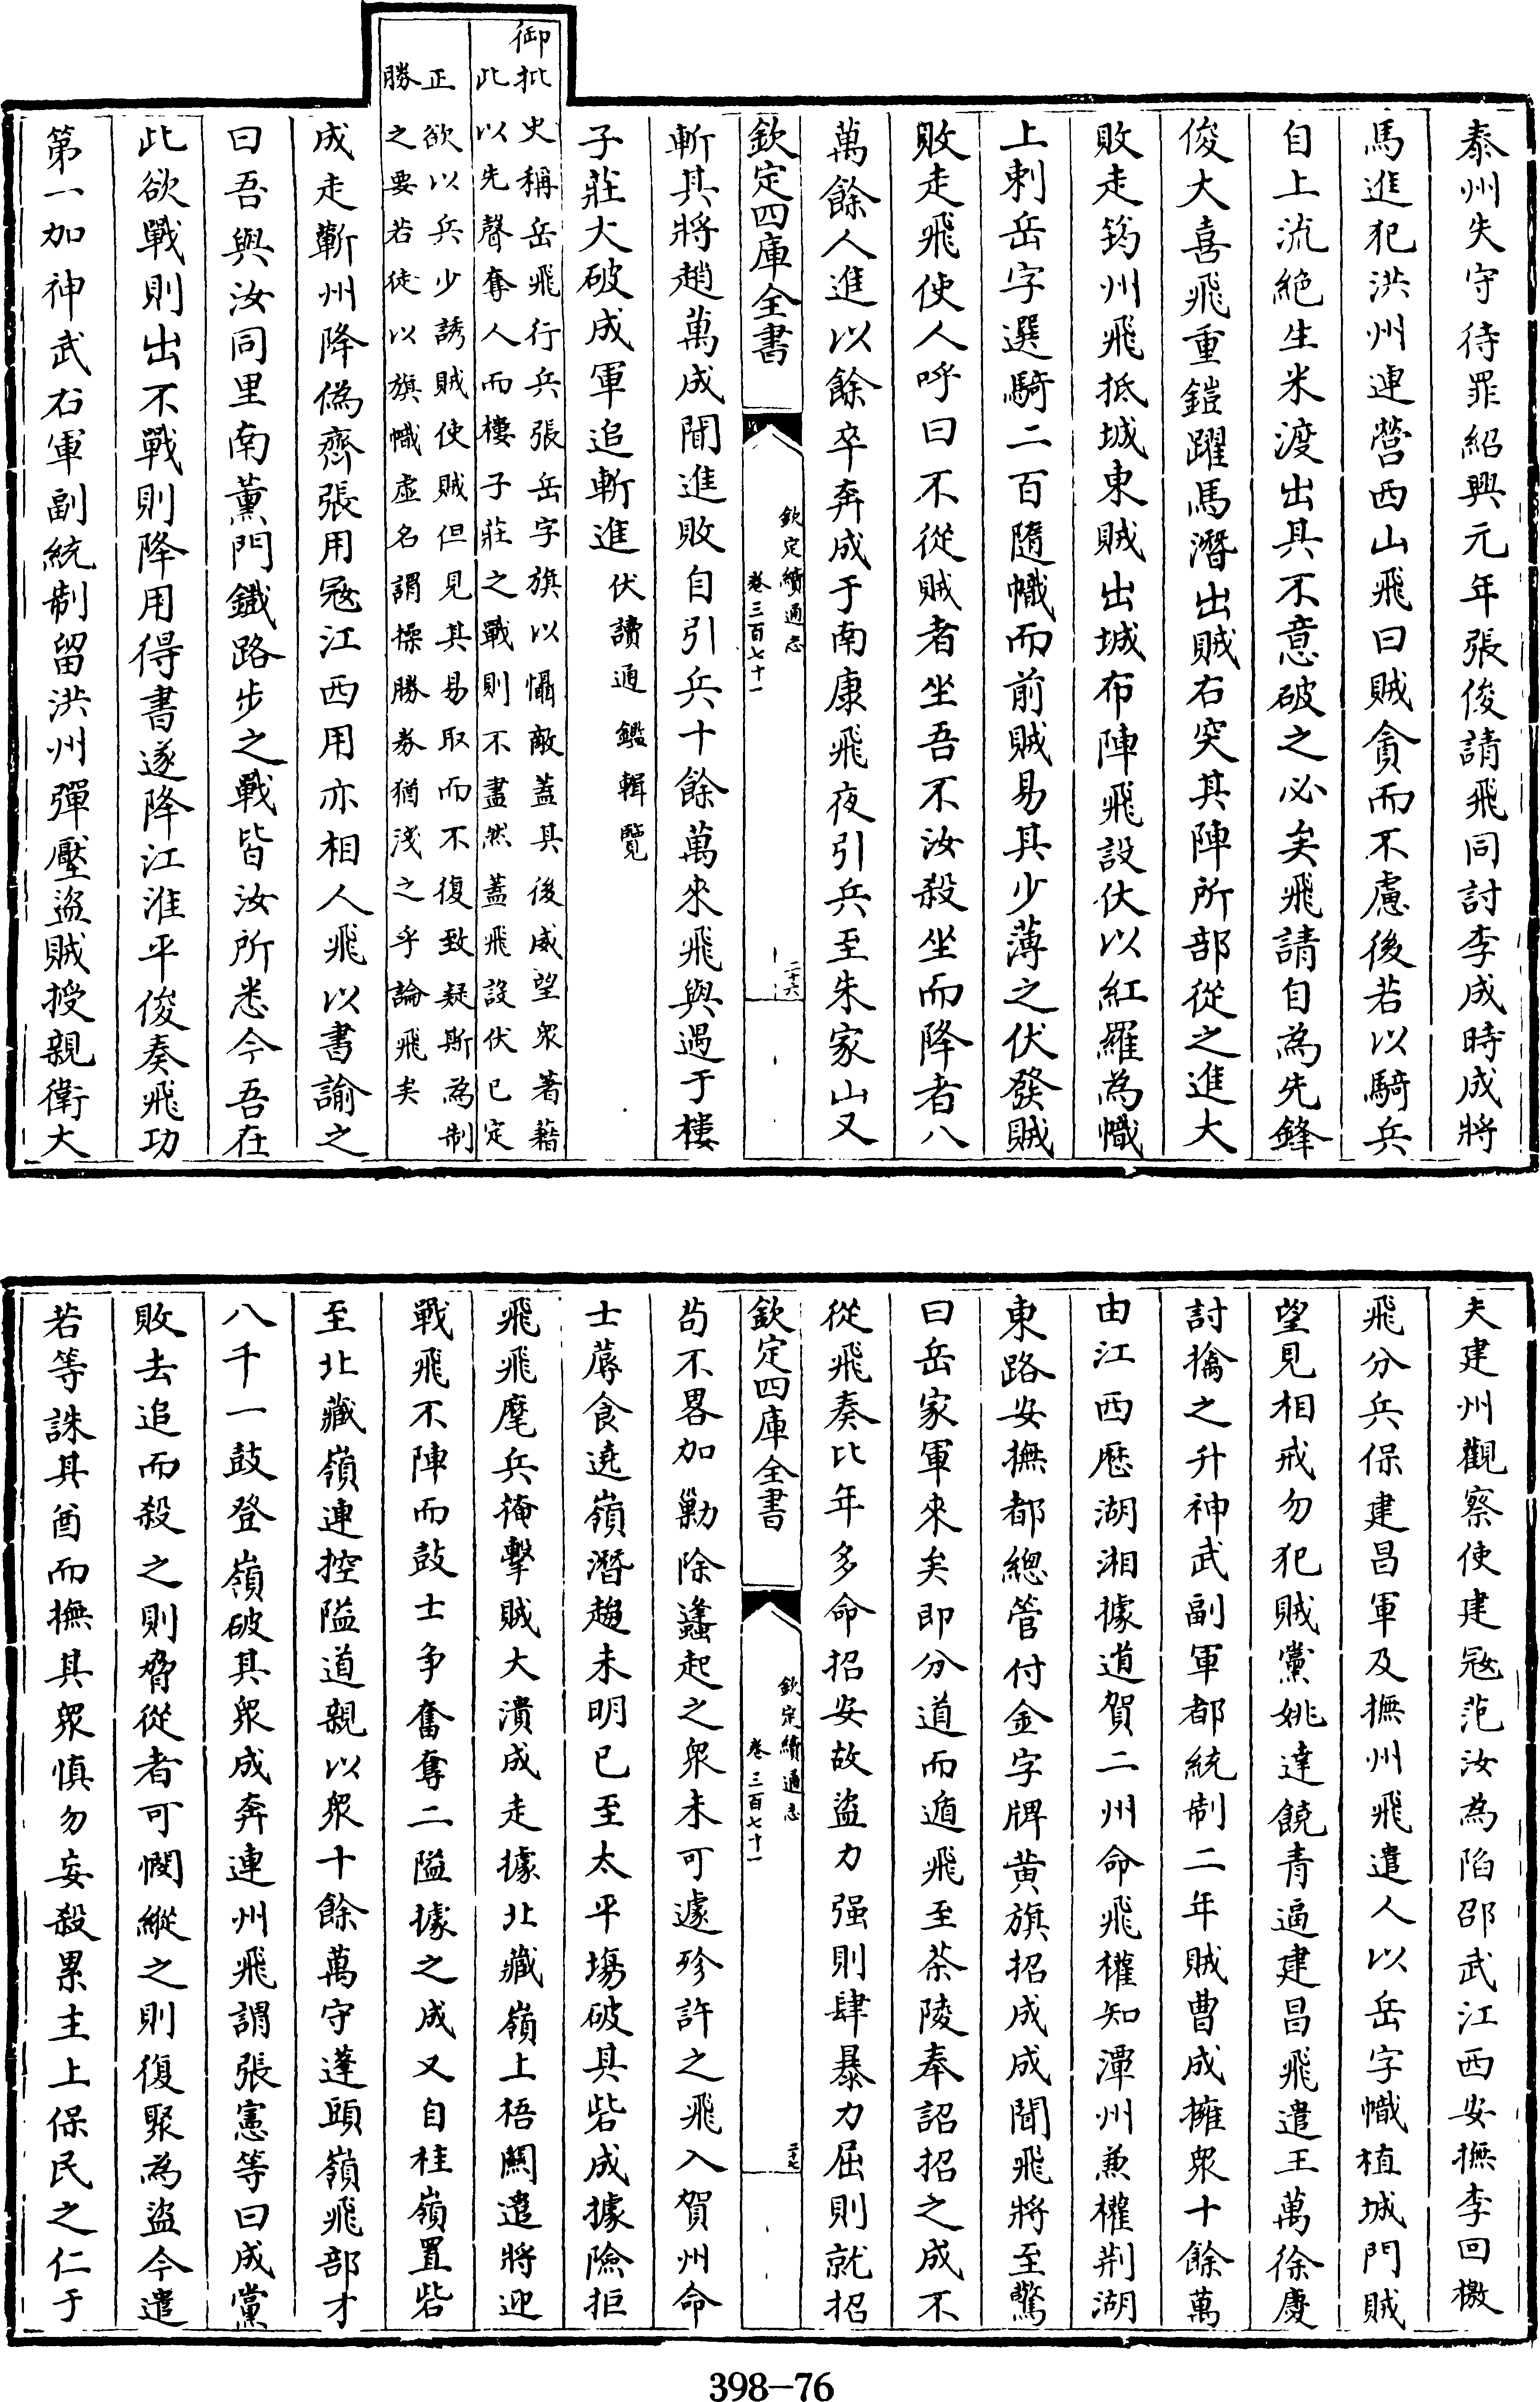 泰州失守待罪紹興元年張俊請飛同討李成時成將
馬進犯洪州連營西山飛曰賊貪而不慮後若以騎兵
自上流絶生米渡出其不意破之必矣飛請自為先鋒
俊大喜飛重鎧躍馬潛出賊右突其陣所部從之進大
敗走筠州飛抵城東賊出城布陣飛設伏以紅羅為幟
上刺岳字選騎二百隨幟而前賊易其少薄之伏發賊
敗走飛使人呼曰不從賊者坐吾不汝殺坐而降者八
萬餘人進以餘卒奔成于南康飛夜引兵至朱家山又
欽定四庫全書
欽定續通志
卷三百七十一
二十六
斬其將趙萬成聞進敗自引兵十餘萬來飛與遇于樓
子莊大破成軍追斬進伏讀通鑑輯覽
御批史稱岳飛行兵張岳字旗以懾敵蓋其後威望衆著藉
此以先聲奪人而樓子莊之戰則不盡然蓋飛設伏已定
正欲以兵少誘賊使賊但見其易取而不復致疑斯為制
勝之要若徒以旗幟虛名謂操勝券猶淺之乎論飛矣
成走蘄州降偽齊張用寇江西用亦相人飛以書諭之
曰吾與汝同里南薰門鐵路步之戰皆汝所悉今吾在
此欲戰則出不戰則降用得書遂降江淮平俊奏飛功
第一加神武右軍副統制留洪州彈壓盜賊授親衛大
夫建州觀察使建寇范汝為陷邵武江西安撫李回檄
飛分兵保建昌軍及撫州飛遣人以岳字幟植城門賊
望見相戒勿犯賊黨姚達饒青逼建昌飛遣王萬徐慶
討擒之升神武副軍都統制二年賊曹成擁衆十餘萬
由江西歷湖湘據道賀二州命飛權知潭州兼權荆湖
東路安撫都總管付金字牌黄旗招成成聞飛將至驚
曰岳家軍來矣即分道而遁飛至茶陵奉詔招之成不
從飛奏比年多命招安故盜力强則肆暴力屈則就招
欽定四庫全書
欽定續通志
卷三百七十一
二十七
苟不畧加勦除蠭起之衆未可遽殄許之飛入賀州命
士蓐食遶嶺潛趨未明已至太平場破其砦成據險拒
飛飛麾兵掩擊賊大潰成走據北藏嶺上梧關遣將迎
戰飛不陣而鼓士争奮奪二隘據之成又自桂嶺置砦
至北藏嶺連控隘道親以衆十餘萬守蓬頭嶺飛部才
八千一鼓登嶺破其衆成奔連州飛謂張憲等曰成黨
敗去追而殺之則脅從者可憫縱之則復聚為盜今遣
若等誅其酋而撫其衆慎勿妄殺累主上保民之仁于
398-76